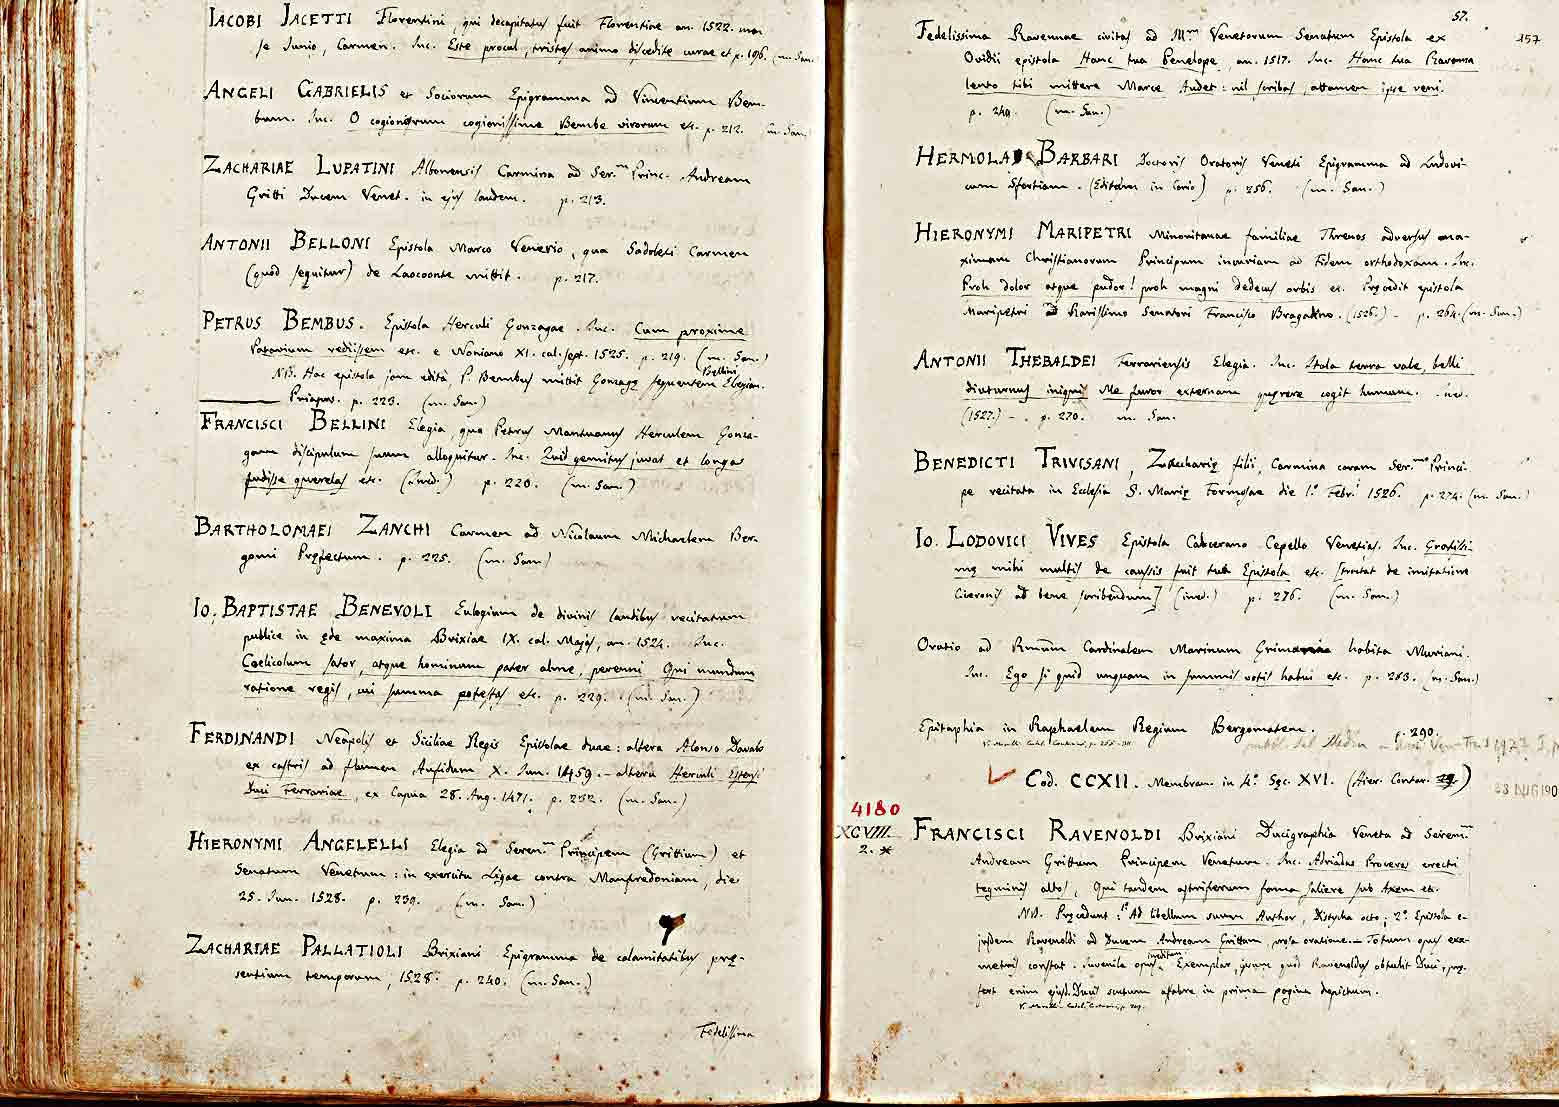 IACOBI JACETTI Florentini, qui decapitatus fuit Florentiae an. 1522. men
se Junio, Carmen. Inc. Este procul, tristes animo discedite curae etc. p. 196. (m. San.
ANGELI GABRIELIS et Sociorum Epigramma ad Vincentium Bem-
bum. Inc. O cogionissimum cogionissime Bembe virorum etc. p. 212. (m. San.)
ZACHARIAE LUPATINI Albonensis Carmina ad Ser.m Princ. Andream
Gritti Ducem Venet. in ejus laudem. p. 213.
ANTONII BELLONI Epistola Marco Venerio, qua Sadoleti Carmen
(quod sequitur) de Laocoonte mittit. p. 217.
PETRUS BEMBUS. Epistola Herculi Gonzagae. Inc. Cum proxime
Patavium rediissem etc. e Noniano XI. cal. sept. 1525. p. 219. (m. San.)
NB. Hac epistola jam edita P. Bembus mittit Gonzagę sequentem Bellini Elegiam.
Priapus. p. 223. (m. San.)
FRANCISCI BELLINI Elegia, qua Petrus Mantuanus Herculem Gonza-
gam discipulum suum alloquitur. Inc. Quid gemitus juvat et longas
fudisse querelas etc. (Ined.) p. 220. (m. San.)
BARTHOLOMAEI ZANCHI Carmen ad Nicolaum Michaelem Ber-
gomi Pręfectum. p. 225. (m. San.)
IO. BAPTISTAE BENEVOLI Eulogium de divinis laudibus recitatum
publice in ęde maxima Brixiae IX. cal. Majas, an. 1524. Inc.
Coelicolum sator, atque hominum pater alme, perenni Qui mundum
ratione regis, cui summa potestas etc. p. 229. (m. San.)
FERDINANDI Neapolis et Siciliae Regis Epistolae duae: altera Alonso Davalo
ex castris ad flumen Aufidum X. Jun. 1459. – altera Herculi Estensi
Duci Ferrariae, ex Capua 28. Aug. 1471. p. 232. (m. San.)
HIERONYMI ANGELELLI Elegia ad Seren.m Principem (Grittium) et
Senatum Venetum: in exercitu Ligae contra Manfredoniam, die
25. Jun. 1528. p. 239. (m. San.)
ZACHARIAE PALLATIOLI Brixiani Epigramma de calamitatibus prę-
sentium temporum, 1528. p. 240. (m. San.)
Fedelissima
57.
157
Fedelissima Ravennae civitas ad M.m Venetorum Senatum Epistola ex
Ovidii epistola Hanc tua Penelope, an. 1517. Inc. Hanc tua Ravenna
lento tibi mittere Marce Audet: nil scribas, attamen ipse veni.
p. 249. (m. San.)
HERMOLAI BARBARI Doctoris Oratoris Veneti Epigramma ad Ludovi-
cum Sfortiam. (Editum in Corio) p. 256. (m. San.)
HIERONYMI MARIPETRI Minoritanae familiae Threnos adversus ma-
ximam Christianorum Principum incuriam ad Fidem orthodoxam. Inc.
Proh dolor atque pudor! proh magni dedecus orbis etc. Pręcedit epistola
Maripetri ad Rarissimo Senatori Francisco Bragadeno. (1526.) – p. 264. (m. San.)
ANTONII THEBALDEI Ferrariensis Elegia. Inc. Itala terra vale, belli
diuturnus iniqui Me furor externam quęrere cogit humum. ined.
(1527.) – . p. 270. m. San.
BENEDICTI TRIVISANI, Zacharię filii, Carmina coram Ser.mo Princi-
pe recitata in Ecclesia S. Marię Formosae die 1.o Febr. 1526. p. 274. (m. San.)
IO. LODOVICI VIVES Epistola Cabcerano Cepello Venetias. Inc. Gratissi-
mę mihi multis de caussis fuit tua Epistola etc. [tractat de imitatione
Ciceronis ad bene scribendum] (ined.) p. 276. (m. San.)
Oratio ad Rmum Cardinalem Marinum Grimanum habita Muriani.
Inc. Ego si quid unquam in summis votis habui etc. p. 283. (m. San.)
Epitaphia in Raphaelem Regium Bergomatem. p. 290.
Cod. CCXII. Membran. in 4.o Sęc. XVI. (Hier. Contar. )
4180
XCVIII
2. *
FRANCISCI RAVENOLDI Brixiani Ducigraphia Veneta ad Serem.m
Andream Grittum Principem Venetum. Inc. Adriadas Proceres erecti
tegminis altos, Qui tandem astriferum fama saliere sub Axem etc.
NB. Pręcedunt: 1.o Ad libellum suum Author, Disticha octo; 2.o Epistola e-
jusdem Ravenoldi ad Ducem Andream Grittum, prosa oratione. – Totum opus exa-
metris constat. Juvenile opus ineditum. Exemplar, ipsum quod Ravenoldus obtulit Duci, prę-
fert enim ejusd. Ducis scutum affabre in prima pagina depictum.